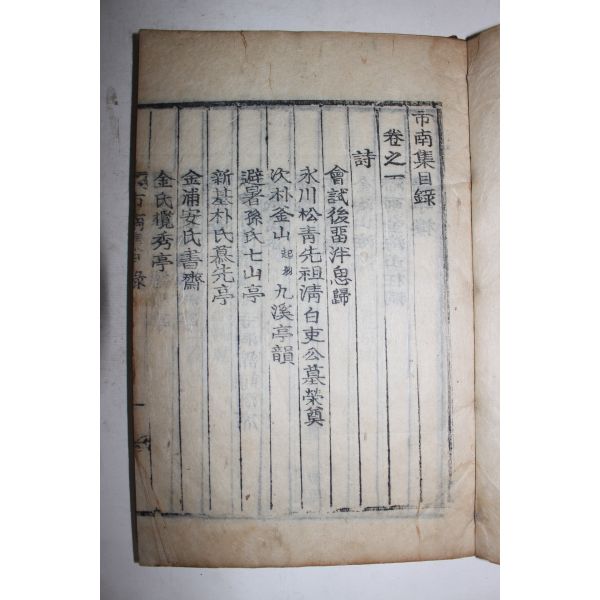 市南集目錄
卷之一
詩
會試後留泮恩歸
永川松青先祖淸白吏公墓榮奠
次朴釜山起弼九溪亭韻
避暑孫氏七山亭
新基朴氏慕先亭
金浦安氏書齋
金氏攬秀亭
市南集目錄
一